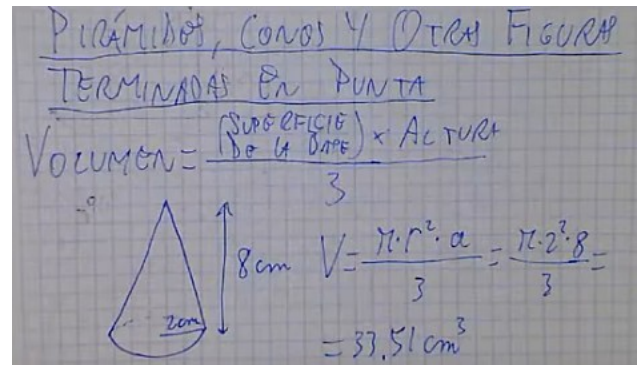 PIRÁMIDES, CONOS Y OTRAS FIGURAS
TERMINADAS EN PUNTA
VOLUMEN = (SUPERFICIE DE LA BASE) × ALTURA / 3
8cm
2cm
V = π·r²·a / 3 = π·2²·8 / 3 =
= 33,51 cm³